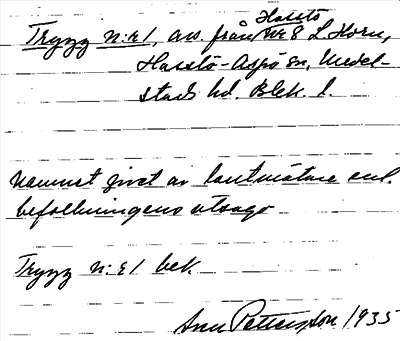 Hasslö
Trygg N:r 1, avs. från Nr 8 L. Horn,
Hasslö-Aspö sn, Medel-
stads hd. Blek. l.
Namnet givet av lantmätare enl.
befolkningens utsago
Trygg N:r 1 bek.
Petterson 1935